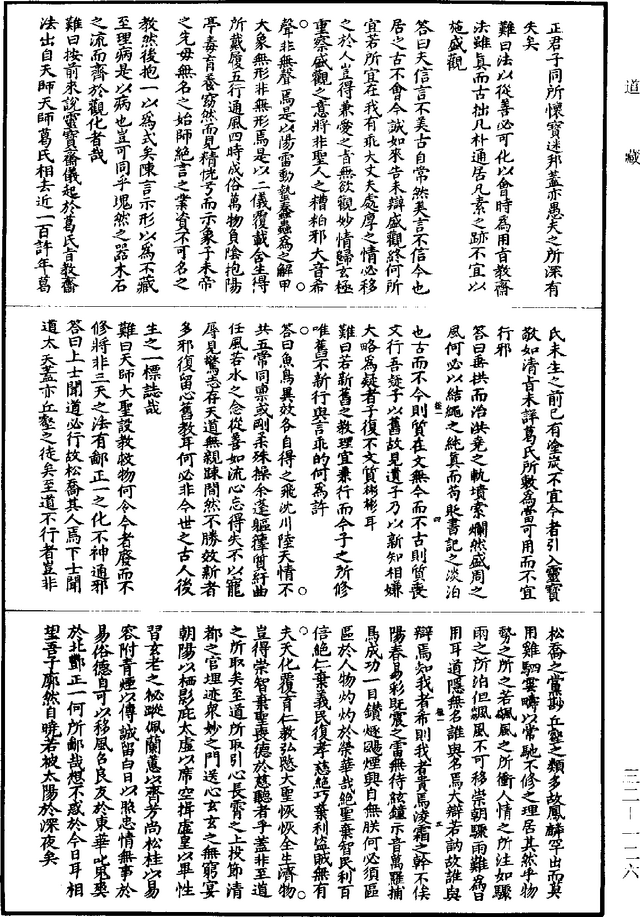 道藏
正君子同所懷寶迷邦蓋亦愚夫之所深有
失矣
難曰法以從善必可化以會時為用音教齋
法雖真而古拙凡朴通居凡素之跡不宜以
施盛觀
答曰夫信言不美古自常然美言不信今也
居之古不會今誠如來告未辯盛觀終何所
宜若所宜在我有乖大丈夫處厚之情必移
之於人豈得兼愛之旨無欲觀妙情歸玄極
重察盛觀之意將非聖人之糟粕邪大音希
聲非無聲焉是以陽雷動蟄蠢蟲為之解甲
大象無形非無形焉是以二儀覆載含生得
所戴履五行通風四時成俗萬物負陰抱陽
亭毒育養窈然而見精恍兮而示象子未帝
之先毋無名之始師絕言之業資不可名之
教然後抱一以為式矣陳言示形以為不藏
至理病是以病也豈可同乎塊然之器木石
之流而齊於觀化者哉
難曰按前來說靈寶齋儀起於葛氏旨教齋
法出自天師天師葛氏相去近一百許年葛
氏未生之前已有塗炭不宜今者引入靈寶
敬如清貞未詳葛氏所數為當可用而不宜
行邪
答曰垂拱而治洪荒之軌墳索爛然盛周之
風何必以結繩之純真而苟貶書記之淡泊
也古而不今則質在文無今而不古則質喪
文行吾疑子以舊故見遺子乃以新知相嫌
大略為疑者子復不文質彬彬耳
難曰若新舊之教理宜兼行而今子之所修
唯舊不新行與言乖的何為許
答曰魚鳥異效各自得之飛沈川陸天情不
共五常同稟或剛柔殊操余蓬軀德質紆曲
任風若水之念從善如流心忘得失不以寵
辱見驚志存天道無親疎闇然不勝效新者
多邪復留心舊教耳何必非今世之古人後
生之一標誌哉
難曰天師大聖設教救物何令今者廢而不
修將非三天之法有鄙正一之化不神通邪
答曰上士聞道必行故松喬其人焉下士聞
道太天蓋亦丘壑之徒矣至道不行者豈非
松喬之黨尠丘壑之類多故鳳麟罕出而莫
用雞駟雲疇以常馳不修之理居其然乎物
勢之所之若颯風之所衝人情之所注如驟
雨之所泊但颯風不可移崇朝驟雨難為日
用耳道隱無名誰與名焉大辯若訥故誰與
辯焉知我者希則我者貴焉凌霜之幹不俟
陽春易彩既震之雷無待絃鐘示音萬羅捕
焉成功一目鑽燧颺煙興自無朕何必須區
區於人物灼灼於榮華哉絕聖棄智民利百
信絕仁棄義民復孝慈絕巧棄利盜賊無有
夫天化覆育仁教弘慜大聖恢恢全生濟物
豈得崇智棄聖喪德於慈聽者乎蓋非至道
之所取矣至道所取引心長霄之上投節清
都之官埋迹眾妙之門送心玄玄之無窮宴
朝陽以栖影庇太虛以席空揖虛皇以畢性
習玄老之祕蹤佩蘭蕙以齊芳尚松桂以易
容附青煙以傳誠留白日以照忠情無事於
易俗德自可以移風名良友於東華叱鬼爽
於北酆正一何所鄙哉想不惑於今日耳相
望吾子廓然自曉若被太陽於深夜矣
三二—一二六